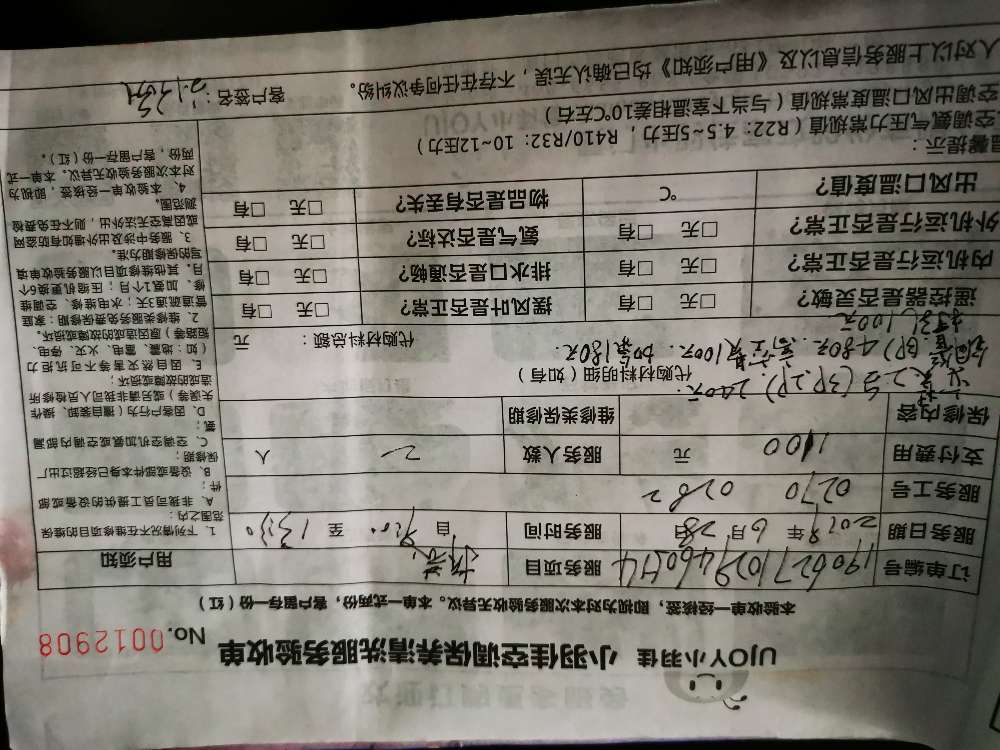 UJOY小羽佳 小羽佳空调保养清洗服务验收单 No.0012908
本验收单一经签核，即视为对本次服务验收无异议。本单一式两份，客户留存一份（红）
订单编号 服务项目 用户须知
服务日期 2019年6月28日 服务时间 自 至
服务工号 0270 0282
支付费用 1100 元 服务人数 二 人
保修内容 维修类保修期
代购材料明细（如有）
2台(3P.2P) 200元
480元. 高空费100元. 加氟180元.
100元
代购材料总额： 元
遥控器是否灵敏? □无 □有 摆风叶是否正常? □无 □有
内机运行是否正常? □无 □有 排水口是否通畅? □无 □有
外机运行是否正常? □无 □有 氨气是否达标? □无 □有
出风口温度值? ℃ 物品是否有丢失? □无 □有
1、下列情况不在维修项目的维保
范围之内：
A、非我司员工提供的设备或部
件；
B、设备或部件本身已经超过出厂
保修期；
C、空调机加氨或空调内部漏
氨；
D、因客户行为（擅自装卸、操作
失误等）或另请非我司人员检修所
造成的故障或损坏；
E、因自然灾害等不可抗拒力
（如：地震、雷电、火灾、停电、
短路等）原因造成的故障或损坏。
2、维修类服务免费保修期：家庭
管道疏通3天；水电维修、空调维
修、加氨1个月；压缩机更换6个
月。其他维修项目以服务验收单填
写的保修期为准。
3、服务中涉及出外墙如有防盗网
或因高空无法外出，则不在免费检
测范围。
4、本验收单一经签核，即视为
对本次服务验收无异议。本单一式
两份，客户留存一份（红）。
温馨提示：
空调氨气压力常规值（R22：4.5~5压力，R410/R32：10~12压力）
空调出风口温度常规值（与当下室温相差10℃左右）
人对以上服务信息以及《用户须知》均已确认无误，不存在任何争议纠纷。 客户签名：